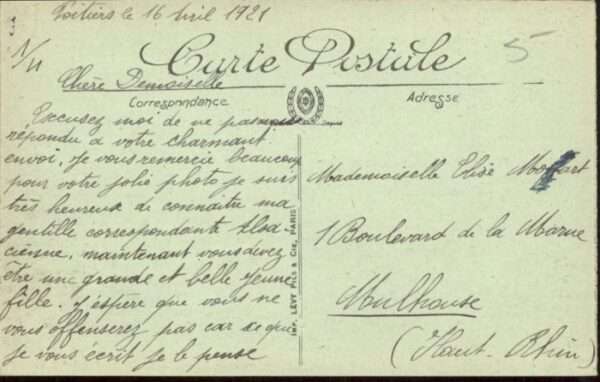 Poitiers le 16 Avril 1921
5
Carte Postale
Chère Demoiselle
Correspondance
Adresse
Excusez moi de ne pas
répondu a votre charmant
envoi, je vous remercie beaucoup
pour votre jolie photo je suis
très heureux de connaitre ma
gentille correspondante Alsa
cienne, maintenant vous devez
être une grande et belle jeune
fille. J'espère que vous ne
vous offenserez pas car ce que
je vous écrit je le pense
IMP. LEVY FILS & Cie, PARIS
Mademoiselle Elise
1 Boulevard de la Marne
Mulhouse
(Haut-Rhin)